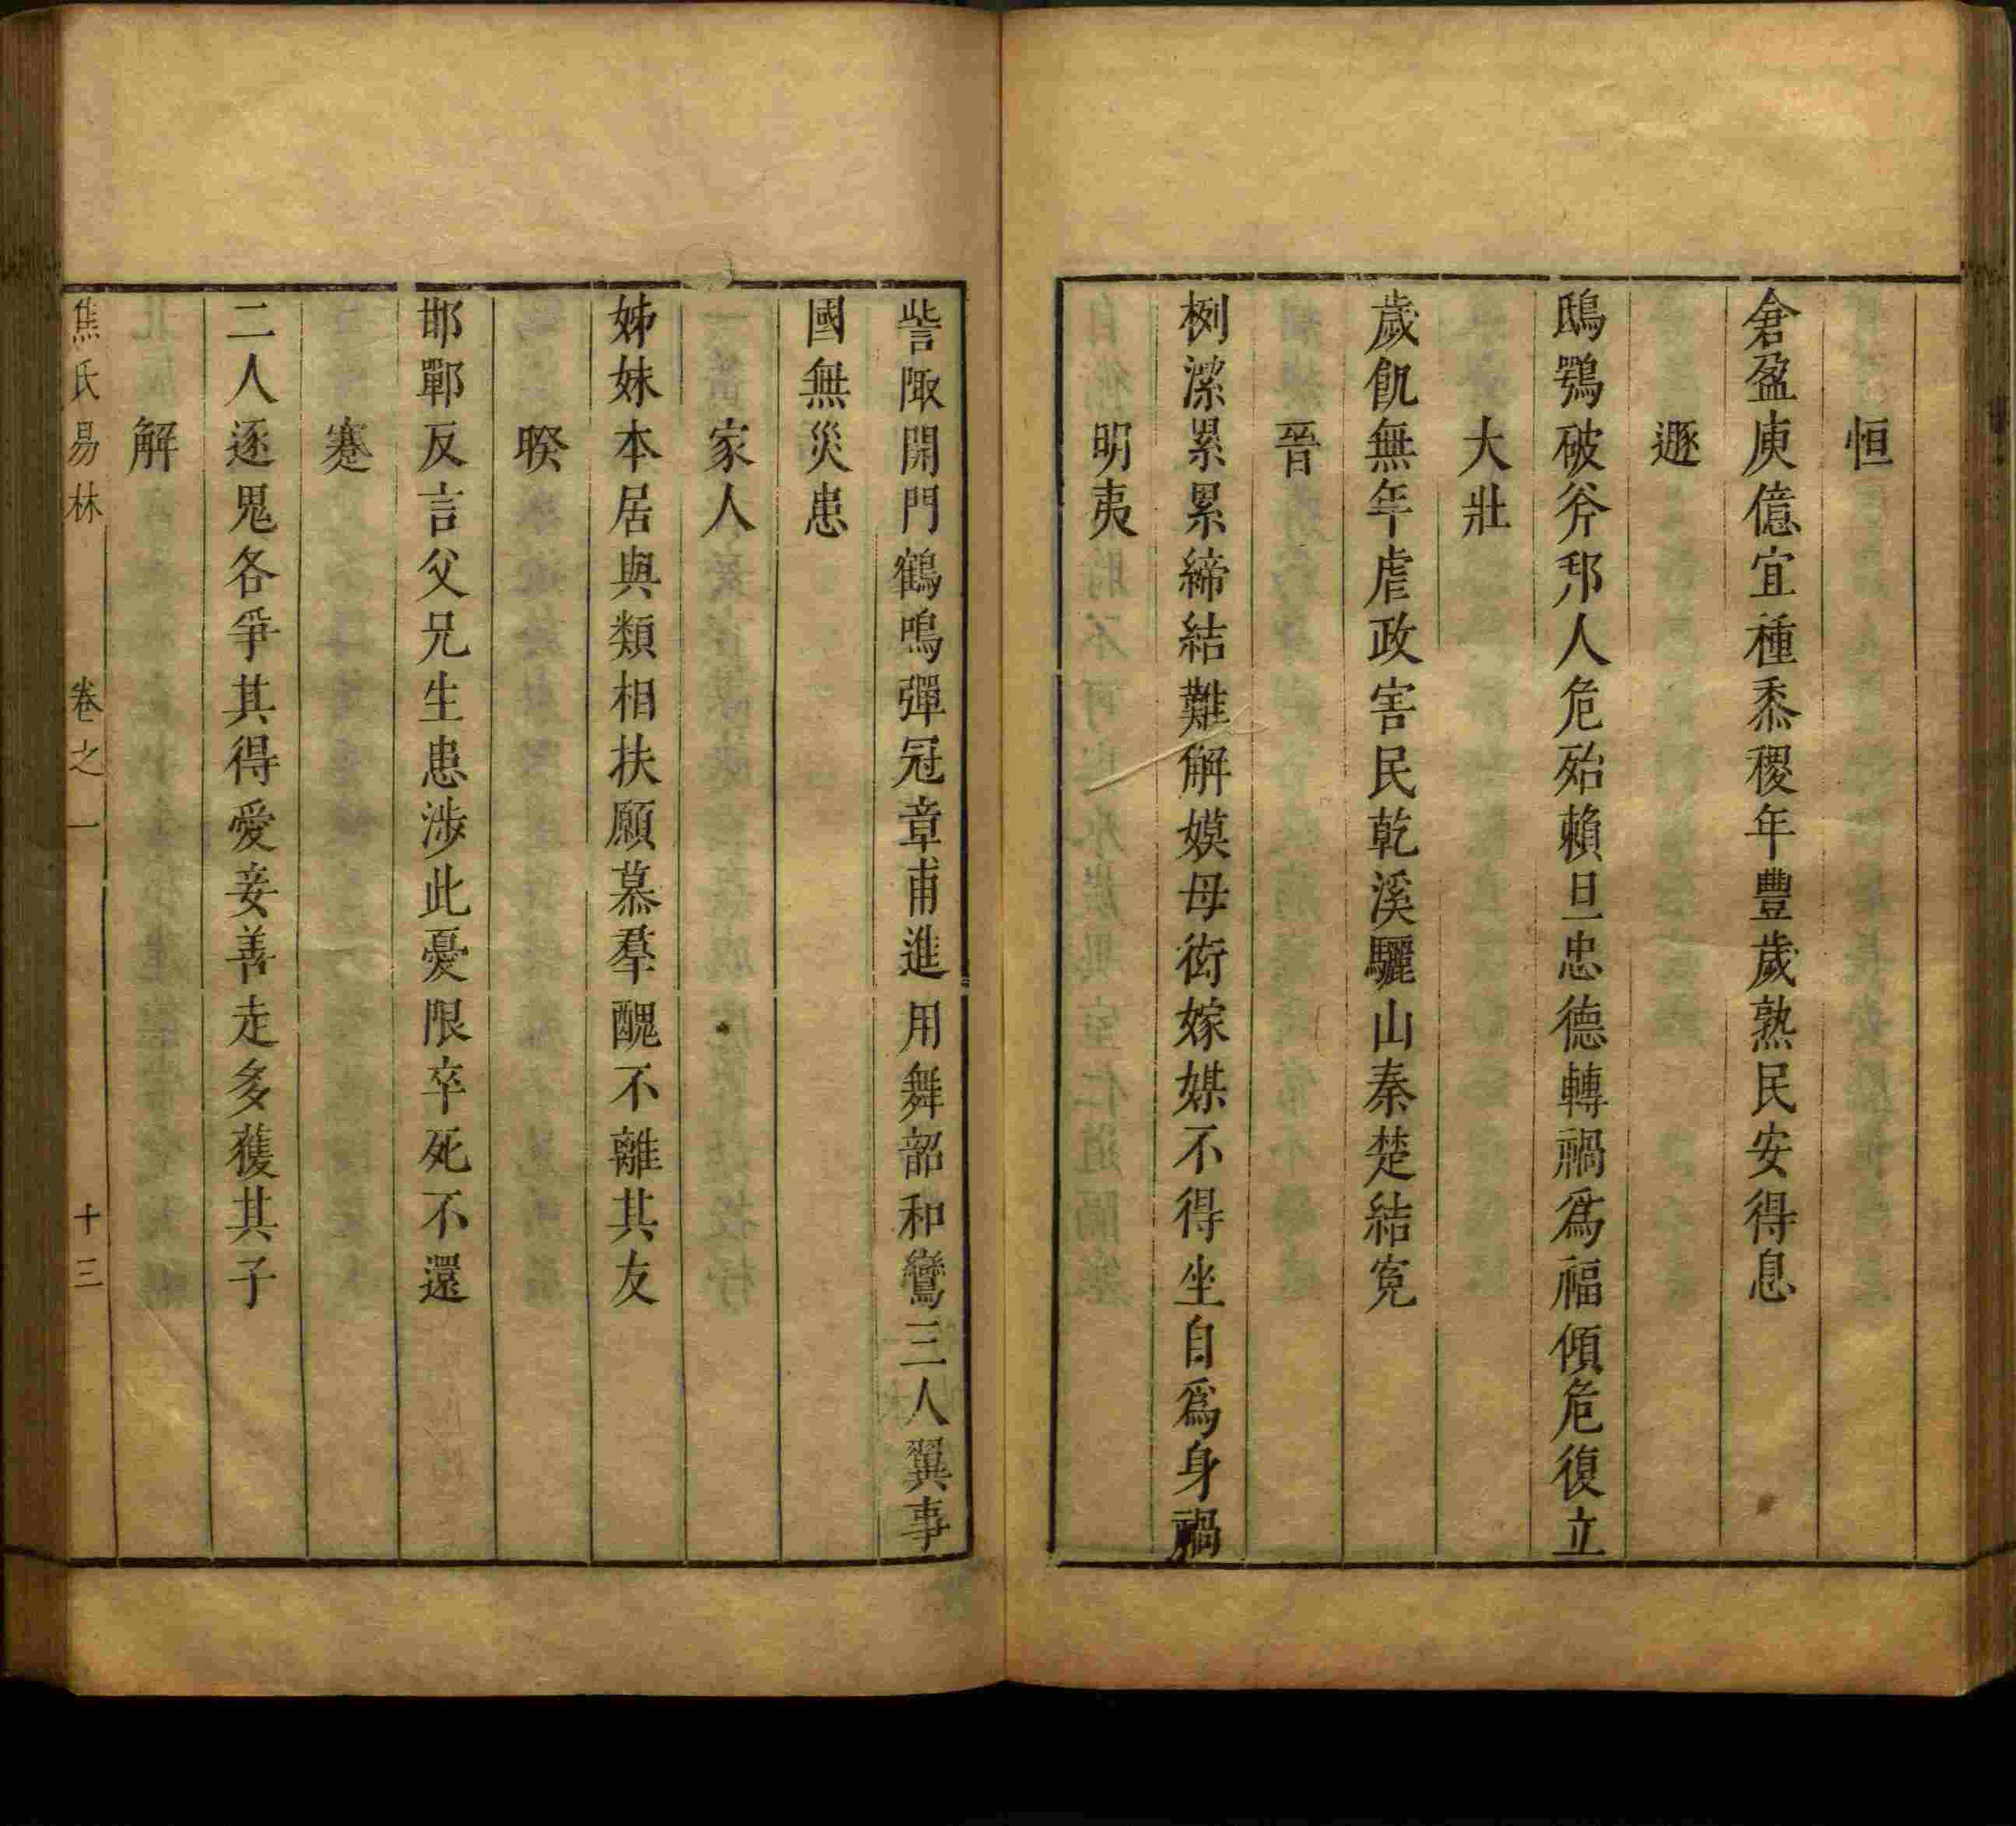 恒
倉盈庾億宜種黍稷年豐歲熟民安得息
遯
鴟鴞破斧邦人危殆賴旦忠德轉禍爲福傾危復立
大壯
歲飢無年虐政害民乾溪驪山秦楚結寃
晉
栵潔累累締結難解嫫母衒嫁媒不得坐自爲身禍
明夷
訾陬開門鶴鳴彈冠章甫進用舞韶和鸞三人翼事
國無災患
家人
姊妹本居與類相扶願慕羣醜不離其友
睽
邯鄲反言父兄生患涉此憂限卒死不還
蹇
二人逐鬼各爭其得愛妾善走多獲其子
解
焦氏易林 卷之一 十三